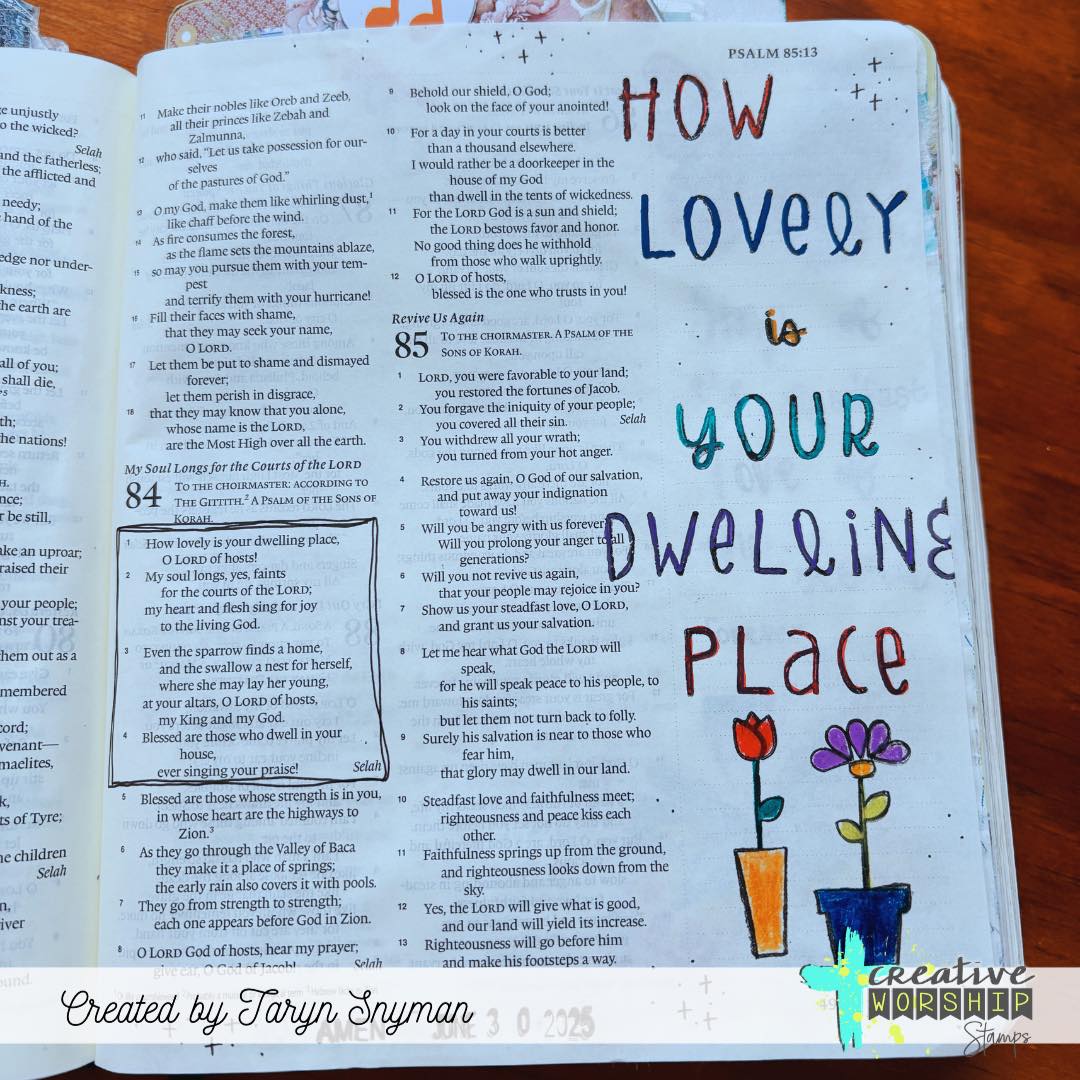 e unjustly
o the wicked?
Selah
and the fatherless;
the afflicted and
needy;
hand of the
edge nor under-
kness;
he earth are
all of you;
shall die,
th;
he nations!
H.
nce;
r be still,
ake an uproar;
raised their
your people;
nst your trea-
hem out as a
membered
cord;
venant—
maelites,
k,
ts of Tyre;
he children
Selah
n,
iver
11 Make their nobles like Oreb and Zeeb,
all their princes like Zebah and
Zalmunna,
12 who said, “Let us take possession for our-
selves
of the pastures of God.”
13 O my God, make them like whirling dust,1
like chaff before the wind.
14 As fire consumes the forest,
as the flame sets the mountains ablaze,
15 so may you pursue them with your tem-
pest
and terrify them with your hurricane!
16 Fill their faces with shame,
that they may seek your name,
O LORD.
17 Let them be put to shame and dismayed
forever;
let them perish in disgrace,
18 that they may know that you alone,
whose name is the LORD,
are the Most High over all the earth.
My Soul Longs for the Courts of the LORD
84 TO THE CHOIRMASTER: ACCORDING TO
THE GITTITH.2 A PSALM OF THE SONS OF
KORAH.
1 How lovely is your dwelling place,
O LORD of hosts!
2 My soul longs, yes, faints
for the courts of the LORD;
my heart and flesh sing for joy
to the living God.
3 Even the sparrow finds a home,
and the swallow a nest for herself,
where she may lay her young,
at your altars, O LORD of hosts,
my King and my God.
4 Blessed are those who dwell in your
house,
ever singing your praise! Selah
5 Blessed are those whose strength is in you,
in whose heart are the highways to
Zion.3
6 As they go through the Valley of Baca
they make it a place of springs;
the early rain also covers it with pools.
7 They go from strength to strength;
each one appears before God in Zion.
8 O LORD God of hosts, hear my prayer;
give ear, O God of Jacob! Selah
PSALM 85:13
9 Behold our shield, O God;
look on the face of your anointed!
10 For a day in your courts is better
than a thousand elsewhere.
I would rather be a doorkeeper in the
house of my God
than dwell in the tents of wickedness.
11 For the LORD God is a sun and shield;
the LORD bestows favor and honor.
No good thing does he withhold
from those who walk uprightly.
12 O LORD of hosts,
blessed is the one who trusts in you!
Revive Us Again
85 TO THE CHOIRMASTER. A PSALM OF THE
SONS OF KORAH.
1 LORD, you were favorable to your land;
you restored the fortunes of Jacob.
2 You forgave the iniquity of your people;
you covered all their sin. Selah
3 You withdrew all your wrath;
you turned from your hot anger.
4 Restore us again, O God of our salvation,
and put away your indignation
toward us!
5 Will you be angry with us forever
Will you prolong your anger to all
generations?
6 Will you not revive us again,
that your people may rejoice in you?
7 Show us your steadfast love, O LORD,
and grant us your salvation.
8 Let me hear what God the LORD will
speak,
for he will speak peace to his people, to
his saints;
but let them not turn back to folly.
9 Surely his salvation is near to those who
fear him,
that glory may dwell in our land.
10 Steadfast love and faithfulness meet;
righteousness and peace kiss each
other.
11 Faithfulness springs up from the ground,
and righteousness looks down from the
sky.
12 Yes, the LORD will give what is good,
and our land will yield its increase.
13 Righteousness will go before him
and make his footsteps a way.
HOW
LOVELY
is
YOUR
DWELLING
PLACE
AMEN JUNE 3 0 2025
Created by Taryn Snyman
CREATIVE
WORSHIP
Stamps